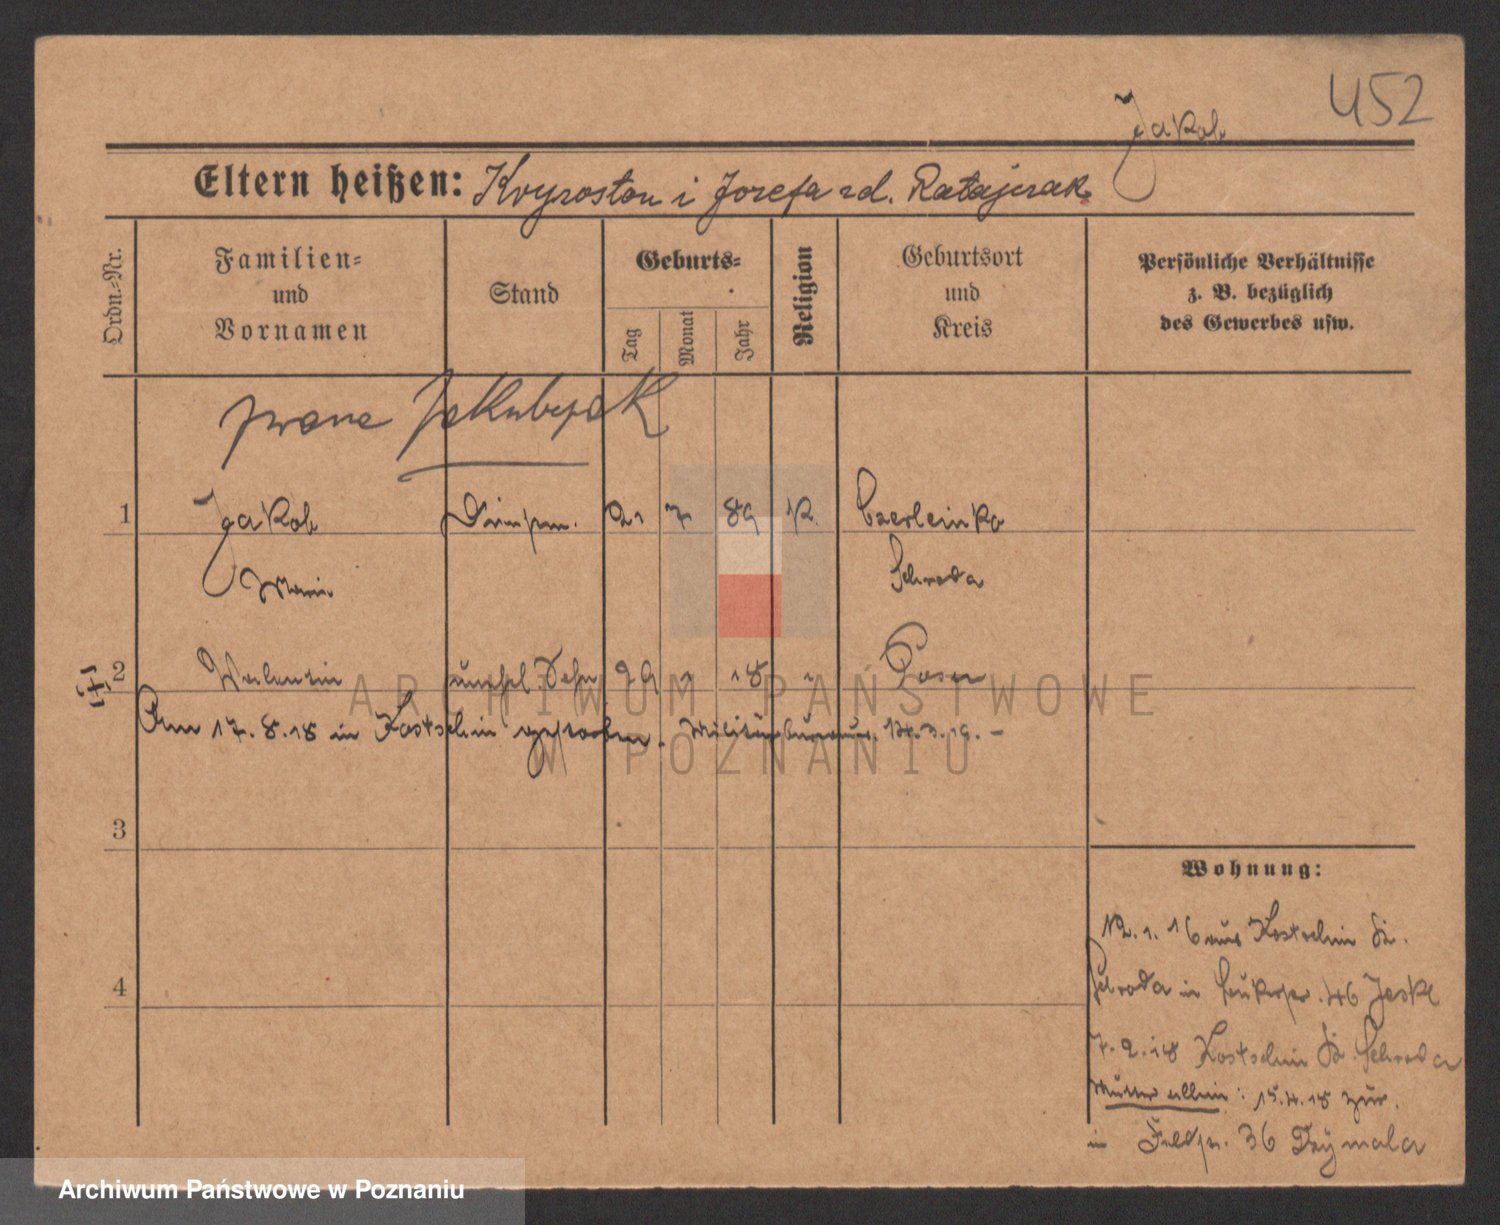 452
Jakob
Eltern heißen: Krysostom i Józefa zd. Ratajczak
Ordn.-Nr.
Familien-
und
Vornamen
Stand
Geburts-
Tag
Monat
Jahr
Religion
Geburtsort
und
Kreis
Persönliche Verhältnisse
z. B. bezüglich
des Gewerbes usw.
zwane Jakubczak
1 Jakob 21 7 89 K. Czerleinko
Schroda
2 Valentin unehel. Sohn 29 1 18 " Posen
Am 17.8.18 in Kostschin gestorben.
ARCHIWUM PAŃSTWOWE
W POZNANIU
3
4
Wohnung:
12.1.16 aus Kostschin Kr.
Schroda in 46 Jeske
7.2.18 Kostschin Kr. Schroda
Mutter allein: 15.4.18 zur.
in Feldstr. 36
Archiwum Państwowe w Poznaniu